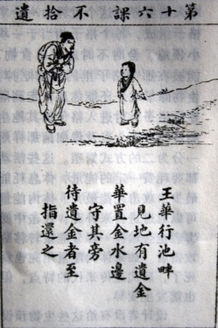 第十六課　不拾遺
王華行池畔
見地有遺金
華置金水邊
守其旁
待遺金者至
指還之